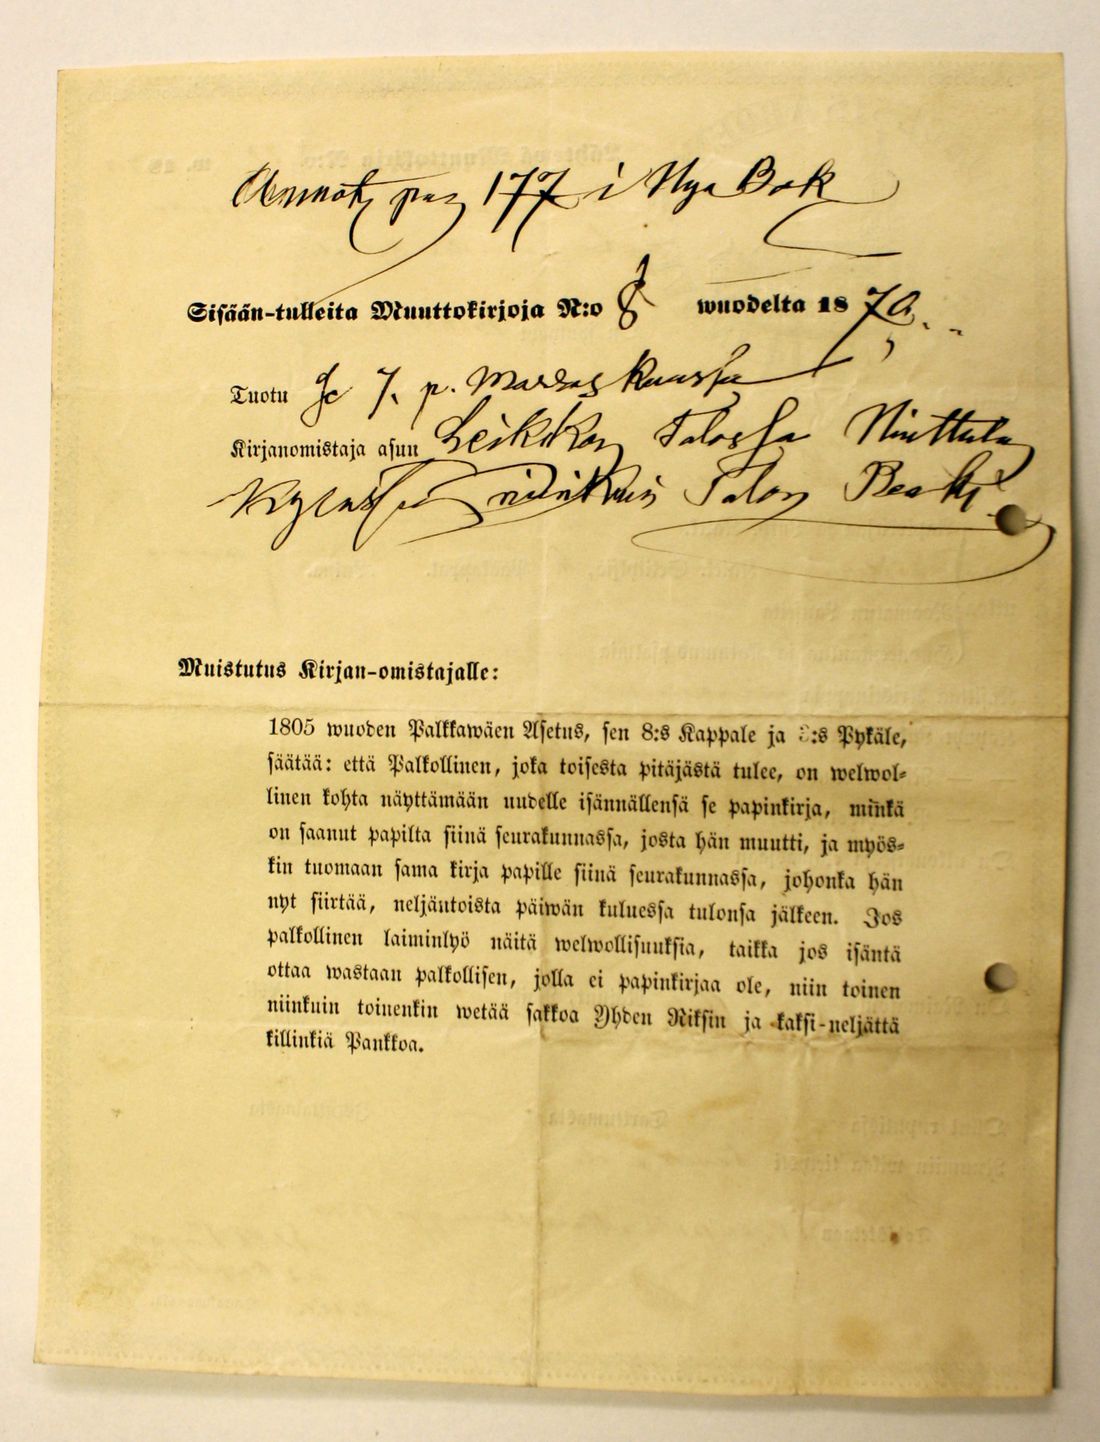 Annot pag 177 i Nya Bok
Sisään-tulleita Muuttokirjoja N:o 8 wuodelta 1870.
Tuotu 7. p. Marras kuussa
Kirjanomistaja asuu Leikkon Talossa Niuttula
Kylässä niinkuin Talon
Muistutus Kirjan-omistajalle:
1805 wuoden Palkkawäen Asetus, sen 8:s Kappale ja :s Pykäle,
säätää: että Palkollinen, joka toisesta pitäjästä tulee, on welwol-
linen kohta näyttämään uudelle isännällensä se papinkirja, minkä
on saanut papilta siinä seurakunnassa, josta hän muutti, ja myös-
kin tuomaan sama kirja papille siinä seurakunnassa, johonka hän
nyt siirtää, neljäntoista päiwän kuluessa tulonsa jälkeen. Jos
palkollinen laiminlyö näitä welwollisuuksia, taikka jos isäntä
ottaa wastaan palkollisen, jolla ei papinkirjaa ole, niin toinen
niinkuin toinenkin wetää sakkoa Yhden Riksin ja kaksi-neljättä
killinkiä Pankkoa.